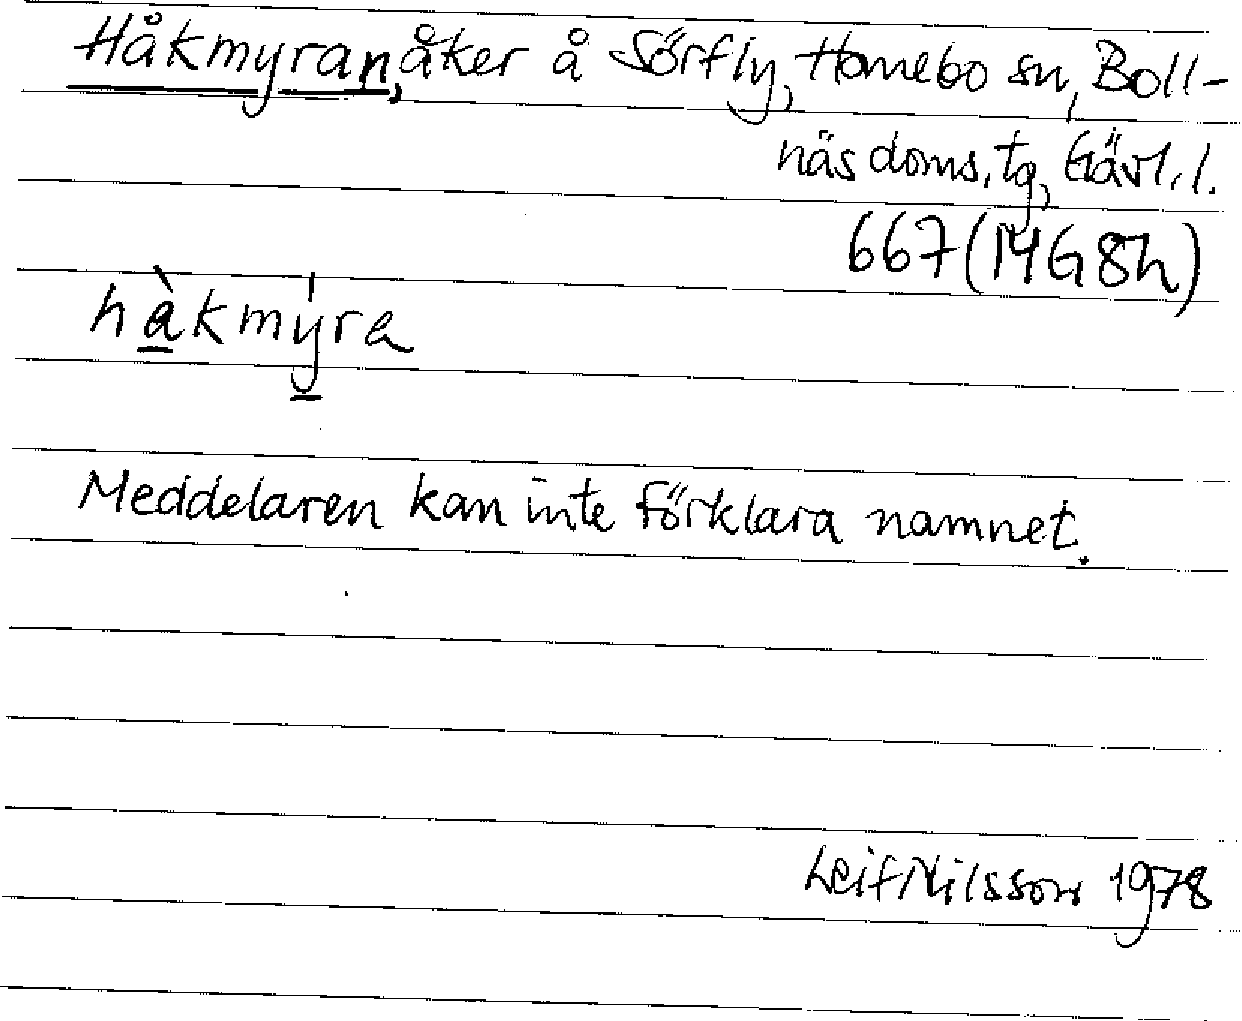 Håkmyran, åker å Sörfly, Hanebo sn, Boll-
näs doms. tg, Gävl. l.
667 (14G 8h)
hàkmýra
Meddelaren kan inte förklara namnet.
Leif Nilsson 1978